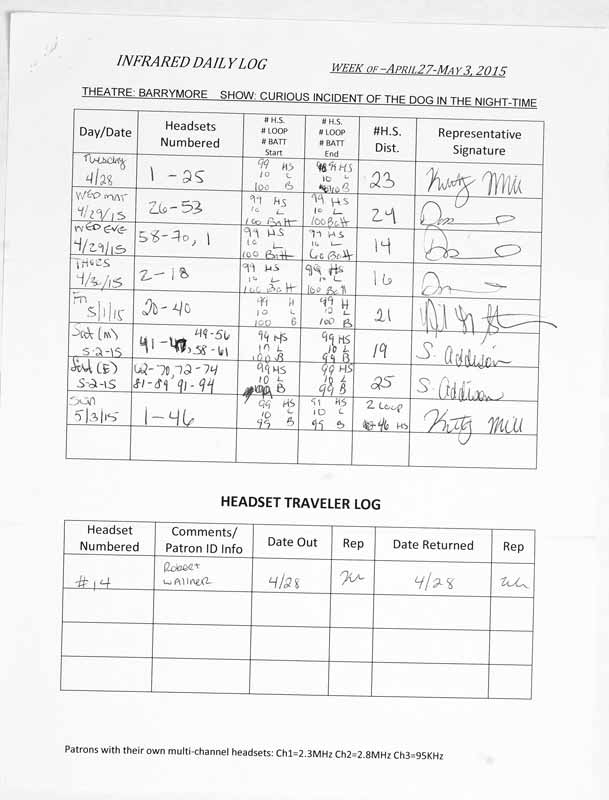 INFRARED DAILY LOG
WEEK OF –APRIL27-MAY 3, 2015
THEATRE: BARRYMORE SHOW: CURIOUS INCIDENT OF THE DOG IN THE NIGHT-TIME
Day/Date Headsets Numbered # H.S. # LOOP # BATT Start # H.S. # LOOP # BATT End #H.S. Dist. Representative Signature
Tuesday 4/28 1 - 25 99 HS 10 L 100 B HS 10 L B 23 Kitty Mill
WED MAT 4/29/15 26-53 99 HS 10 L 100 Batt 99 HS 10 L 100 Batt 24
WED EVE 4/29/15 58-70, 1 99 HS 10 L 100 Batt 99 HS 10 L Batt 14
THURS 2-18 99 HS 10 L 100 Batt 99 HS 10 L 100 Batt 16
Fri 5/1/15 20-40 99 H 10 L 100 B 99 H 10 L 100 B 21
Sat (M) 5-2-15 49-56, 58-61 99 HS 10 L 100 B 99 HS 10 L 99 B 19 S. Addison
Sat (E) 5-2-15 62-70, 72-74 81-89, 91-94 99 HS 10 L B 99 HS 10 L 99 B 25 S. Addison
Sun 5/3/15 1-46 99 HS 10 L 99 B HS 10 L 95 B 2 LOOP 46 HS Kitty Mill
HEADSET TRAVELER LOG
Headset Numbered Comments/ Patron ID Info Date Out Rep Date Returned Rep
#14 Robert Wallner 4/28 4/28
Patrons with their own multi-channel headsets: Ch1=2.3MHz Ch2=2.8MHz Ch3=95KHz